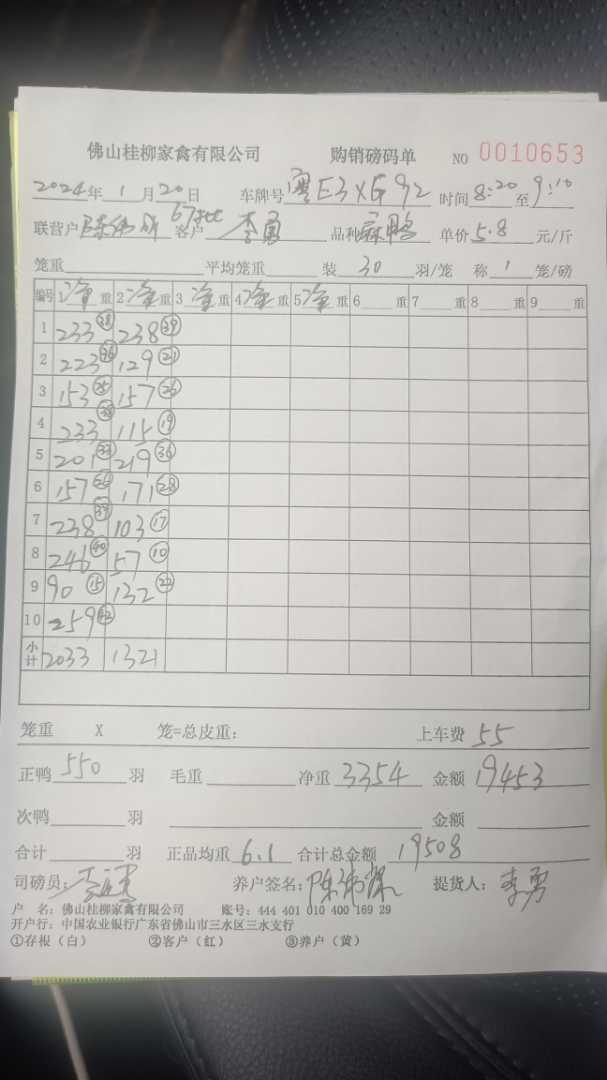 佛山桂柳家禽有限公司 购销磅码单 NO 0010653
2024年 1 月 20 日 车牌号 粤E3XG92 时间 8:20 至 9:10
联营户 客户 李勇 品种 麻鸭 单价 5.8 元/斤
笼重 平均笼重 装 30 羽/笼 称 1 笼/磅
编号 1 净 重 2 净 重 3 净 重 4 净 重 5 净 重 6 重 7 重 8 重 9 重
1 233 38 238 39
2 223 36 129 21
3 153 25 157 26
4 233 38 115 19
5 201 33 219 36
6 157 26 171 28
7 238 39 103 17
8 246 40 57 10
9 90 15 132 22
10 259
小计 2033 1321
笼重 X 笼=总皮重: 上车费 55
正鸭 550 羽 毛重 净重 3354 金额 19453
次鸭 羽 金额
合计 羽 正品均重 6.1 合计总金额 19508
司磅员: 养户签名: 提货人: 李勇
户 名: 佛山桂柳家禽有限公司 账号: 444 401 010 400 169 29
开户行: 中国农业银行广东省佛山市三水区三水支行
①存根（白） ②客户（红） ③养户（黄）